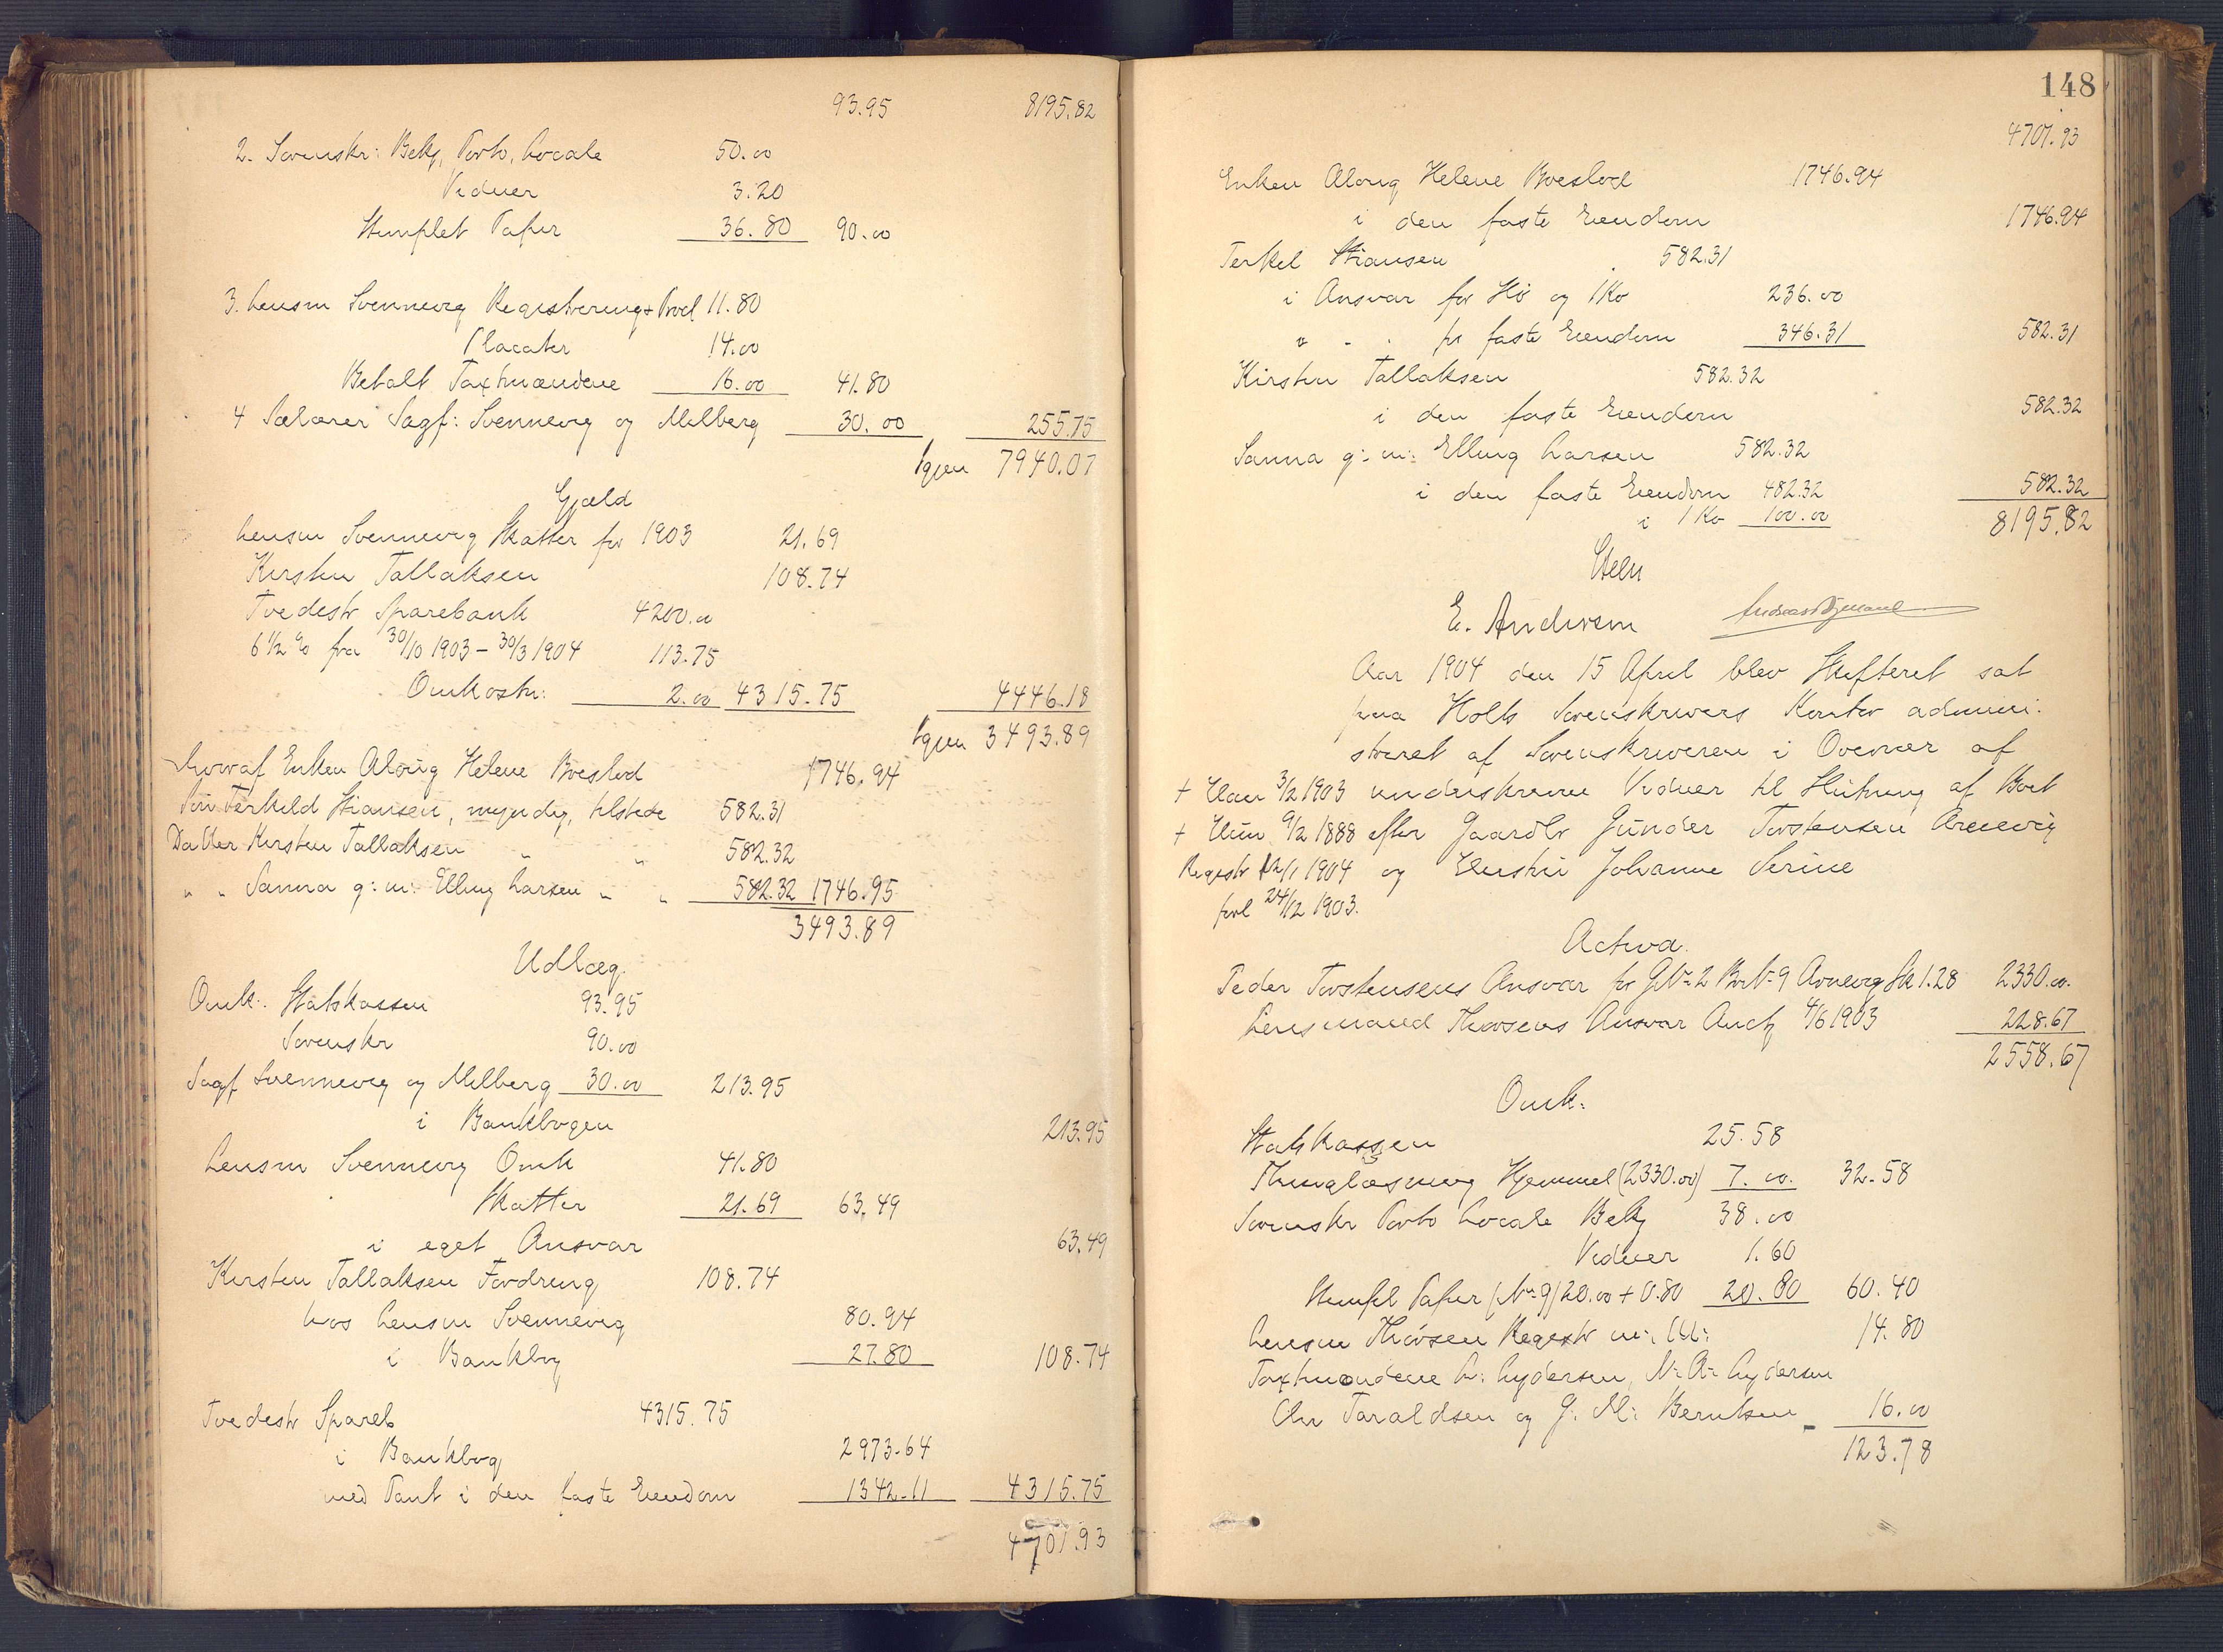 93.95 8195.82
2. Sorenskr: Bekg, Porto, Locale 50.00
Vidner 3.20
Stemplet Papir 36.80 90.00
3. Lensm Svennevig Registrering + 11.80
Placater 14.00
Betalt Taxtmændene 16.00 41.80
4 Salærer Sagf: Svennevig og Melberg 30.00 255.75
Igjen 7940.07
Gjæld
Lensm Svennevig Skatter for 1903 21.69
Kirsten Tallaksen 108.74
Tvedestr Sparebank 4200.00
6 1/2 % fra 30/10 1903 – 30/3 1904 113.75
Omkostn: 2.00 4315.75 4446.18
Igjen 3493.89
hvoraf Enken Alovig Helene Boeslod 1746.94
Søn Terkild Stiansen, myndig, tilstede 582.31
Datter Kirsten Tallaksen " " 582.32
" " Sanna g: m: Elling Larsen " " 582.32 1746.95
3493.89
Udlæg
Omk: Statskassen 93.95
Sorenskr 90.00
Sagf Svennevig og Melberg 30.00 213.95
i Bankbogen 213.95
Lensm Svennevig Omk 41.80
Skatter 21.69 63.49
i eget Ansvar 63.49
Kirsten Tallaksen Fordring 108.74
hos Lensm Svennevig 80.94
i Bankbog 27.80 108.74
Tvedestr Spareb 4315.75
i Bankbog 2973.64
med Pant i den faste Eiendom 1342.11 4315.75
4701.93
148
4701.93
Enken Alovig Helene Boeslod 1746.94
i den faste Eiendom 1746.94
Terkel Stiansen 582.31
i Ansvar for Hö og 1 Ko 236.00
" - - for faste Eiendom 346.31 582.31
Kirsten Tallaksen 582.32
i den faste Eiendom 582.32
Sanna g: m: Elling Larsen 582.32
i den faste Eiendom 482.32 582.32
i 1 Ko 100.00 8195.82
Steen
E. Andersen
Aar 1904 den 15 April blev Skifteret sat
paa Holts Sorenskrivers Kontor admini-
streret af Sorenskriveren i Overvær af
+ Han 3/2 1903 underskrevne Vidner til Slutning af Boet
+ Hun 9/2 1888 efter Gaardbr Gunder Torstensen Arnevig
Registr 12/1 1904 og Hustru Johanne Serine
forl 24/12 1903.
Activa.
Peder Torstensens Ansvar for GNo 2 BrNo 9 Arnevig Sk 1.28 2330.00.
Lensmand Thorsens Ansvar Auch 4/6 1903 228.67
2558.67
Omk:
Statskassen 25.58
Thinglæsning Hjemmel (2330.00) 7.00. 32.58
Sorenskr Porto Locale Bekg 38.00
Vidner 1.60
Stempl Papir (No 9) 20.00 + 0.80 20.80 60.40
Lensm Thorsen Registr m: M: 14.80
Taxtmændene L: Lydersen, N: A: Lydersen
Chr Taraldsen og G: M: Berntsen – 16.00
123.78